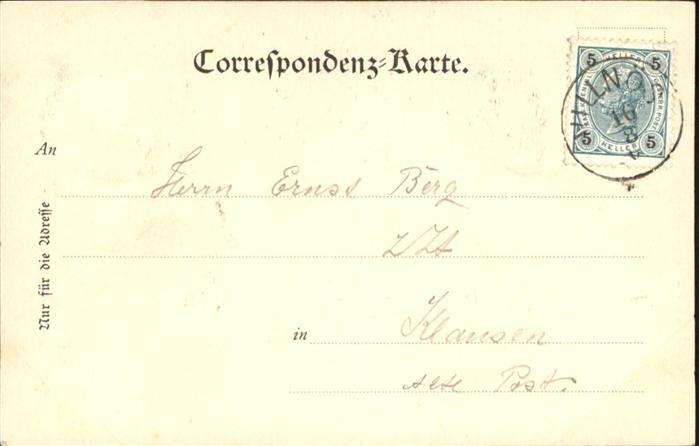 Correspondenz-Karte.
5 HELLER 5
5 HELLER 5
VILLNÖS
16
8
An
Herrn Ernst Berg
Nur für die Adresse
in
Klausen
alte Post.